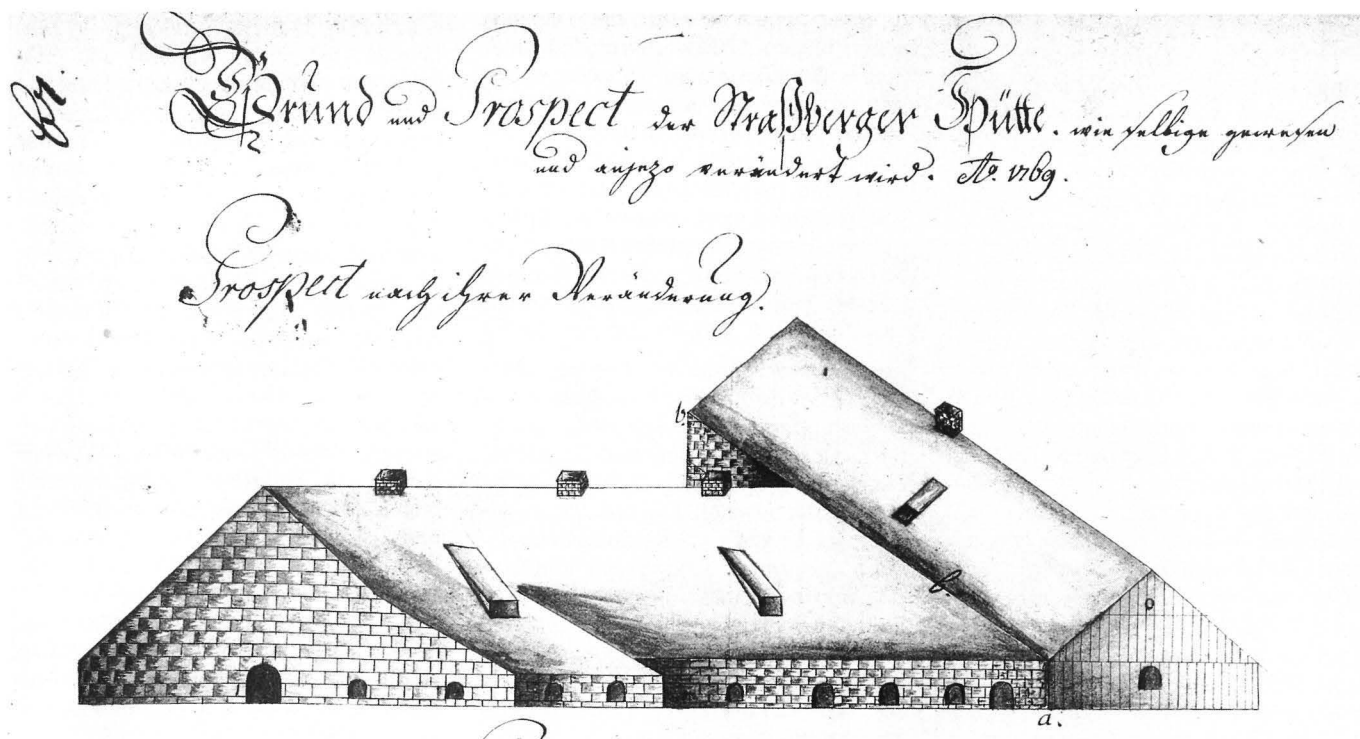 Grund und Prospect der Straßberger Hütte. wie selbige gewesen
und anjezo verändert wird. Ao. 1769.
Prospect nach ihrer Veränderung.
b.
b.
a.